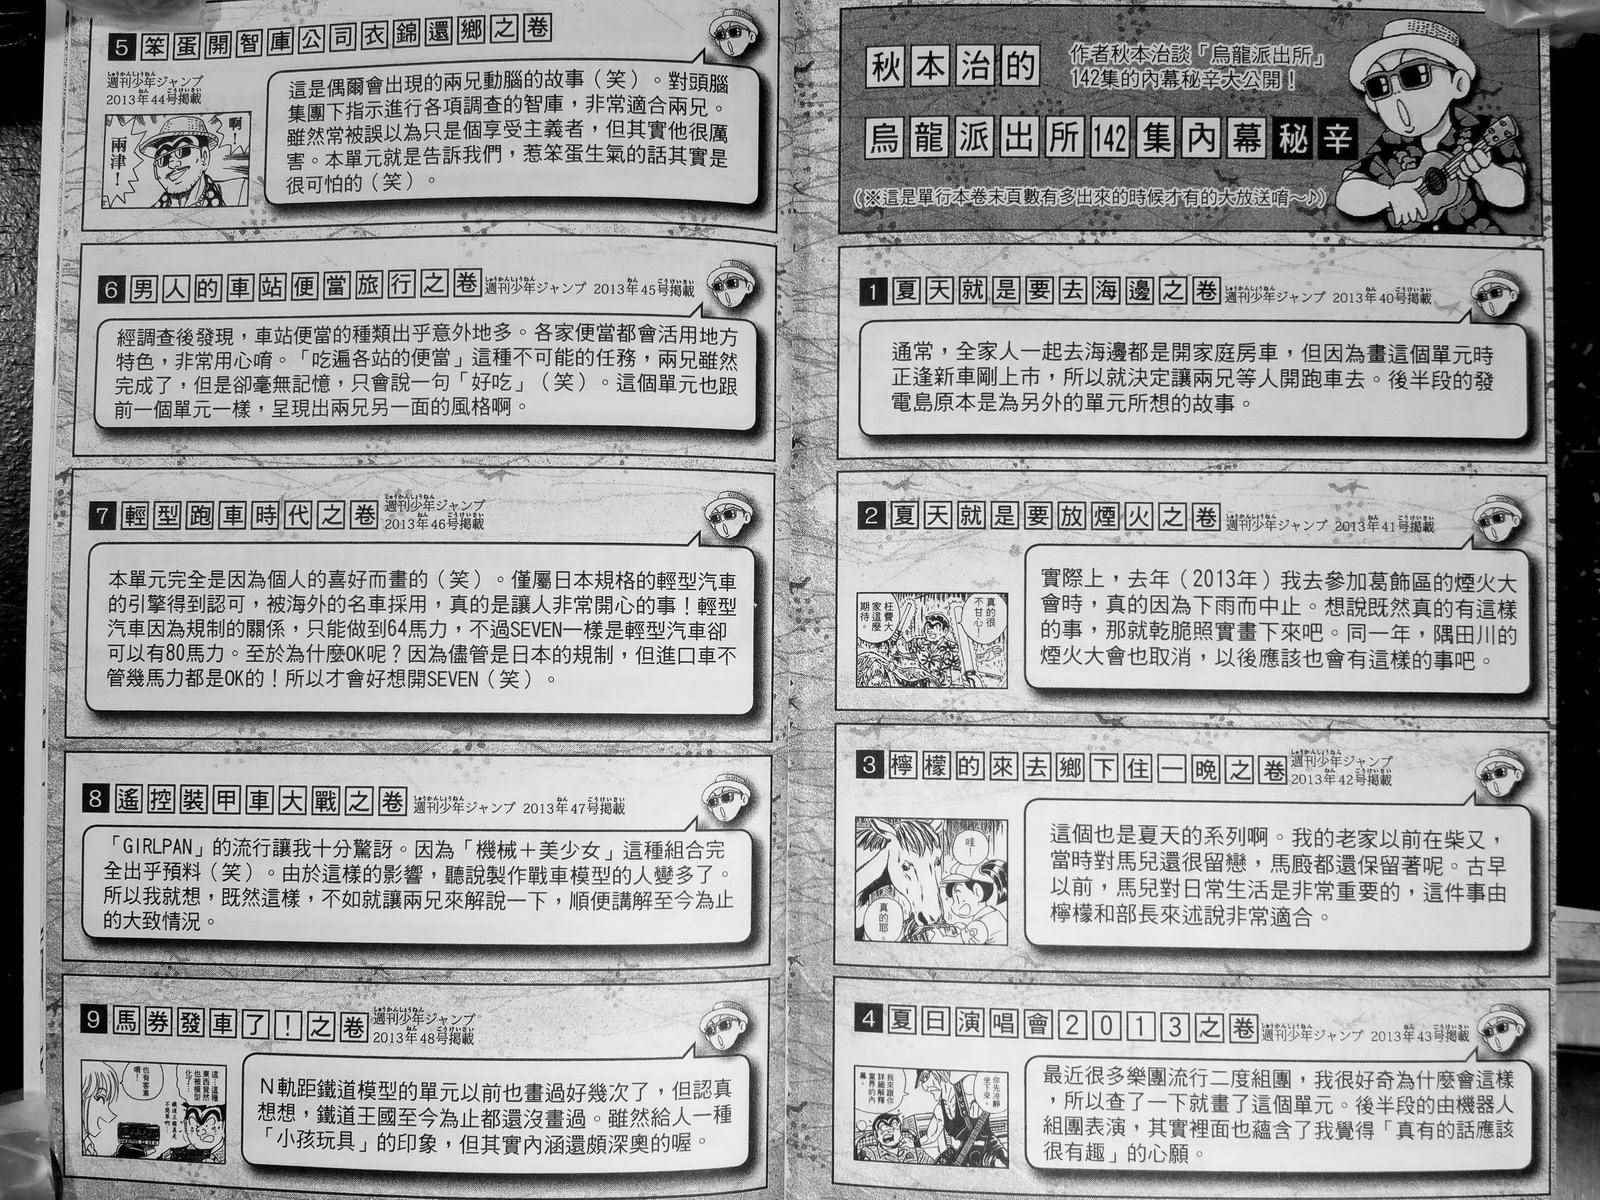 秋本治的
作者秋本治談「烏龍派出所」
142集的內幕秘辛大公開！
烏龍派出所142集內幕秘辛
(※這是單行本卷末頁數有多出來的時候才有的大放送唷～♪)
1 夏天就是要去海邊之卷
週刊少年ジャンプ 2013年40号掲載
通常，全家人一起去海邊都是開家庭房車，但因為畫這個單元時
正逢新車剛上市，所以就決定讓兩兄等人開跑車去。後半段的發
電島原本是為另外的單元所想的故事。
2 夏天就是要放煙火之卷
週刊少年ジャンプ 2013年41号掲載
真的很
不甘心！
枉費大
家這麼
期待。
實際上，去年（2013年）我去參加葛飾區的煙火大
會時，真的因為下雨而中止。想說既然真的有這樣
的事，那就乾脆照實畫下來吧。同一年，隅田川的
煙火大會也取消，以後應該也會有這樣的事吧。
3 檸檬的來去鄉下住一晚之卷
週刊少年ジャンプ
2013年42号掲載
哇！
真的耶。
這個也是夏天的系列啊。我的老家以前在柴又，
當時對馬兒還很留戀，馬廄都還保留著呢。古早
以前，馬兒對日常生活是非常重要的，這件事由
檸檬和部長來述說非常適合。
4 夏日演唱會2013之卷
週刊少年ジャンプ 2013年43号掲載
你先冷靜
坐下來。
我來跟你
詳細解釋
業界的內
幕。
最近很多樂團流行二度組團，我很好奇為什麼會這樣
，所以查了一下就畫了這個單元。後半段的由機器人
組團表演，其實裡面也蘊含了我覺得「真有的話應該
很有趣」的心願。
5 笨蛋開智庫公司衣錦還鄉之卷
週刊少年ジャンプ
2013年44号掲載
啊！
兩津！
這是偶爾會出現的兩兄動腦的故事（笑）。對頭腦
集團下指示進行各項調查的智庫，非常適合兩兄。
雖然常被誤以為只是個享受主義者，但其實他很厲
害。本單元就是告訴我們，惹笨蛋生氣的話其實是
很可怕的（笑）。
6 男人的車站便當旅行之卷
週刊少年ジャンプ 2013年45号掲載
經調查後發現，車站便當的種類出乎意外地多。各家便當都會活用地方
特色，非常用心唷。「吃遍各站的便當」這種不可能的任務，兩兄雖然
完成了，但是卻毫無記憶，只會說一句「好吃」（笑）。這個單元也跟
前一個單元一樣，呈現出兩兄另一面的風格啊。
7 輕型跑車時代之卷
週刊少年ジャンプ
2013年46号掲載
本單元完全是因為個人的喜好而畫的（笑）。僅屬日本規格的輕型汽車
的引擎得到認可，被海外的名車採用，真的是讓人非常開心的事！輕型
汽車因為規制的關係，只能做到64馬力，不過SEVEN一樣是輕型汽車卻
可以有80馬力。至於為什麼OK呢？因為儘管是日本的規制，但進口車不
管幾馬力都是OK的！所以才會好想開SEVEN（笑）。
8 遙控裝甲車大戰之卷
週刊少年ジャンプ 2013年47号掲載
「GIRLPAN」的流行讓我十分驚訝。因為「機械＋美少女」這種組合完
全出乎預料（笑）。由於這樣的影響，聽說製作戰車模型的人變多了。
所以我就想，既然這樣，不如就讓兩兄來解說一下，順便講解至今為止
的大致情況。
9 馬券發車了！之卷
週刊少年ジャンプ
2013年48号掲載
這…這種
東西竟然
也被模型
化了…
也有客車
唷！
N軌距鐵道模型的單元以前也畫過好幾次了，但認真
想想，鐵道王國至今為止都還沒畫過。雖然給人一種
「小孩玩具」的印象，但其實內涵還頗深奧的喔。